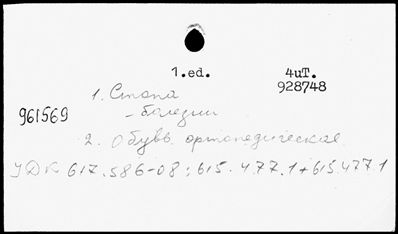 1.ed. 4uT.
928748
1. Стопа
961569 - болезни
2. Обувь ортопедическая
УДК 617.586-08:615.477.1+615.477.1